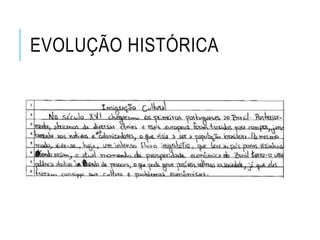 EVOLUÇÃO HISTÓRICA
Imigração Cultural
No século XVI chegaram os primeiros portugueses ao Brasil. Posterior-
mente, africanos de diversas etnias e mais europeus foram trazidos para compor, junta-
mente aos nativos e colonizadores, o que viria a ser a população brasileira. Do mesmo
modo, vê-se, hoje, um intenso fluxo imigratório, que traz ao país povos
sendo assim, o atual momento de prosperidade econômica do Brasil
de pessoas, o que pode gerar possíveis na sociedade, já que eles
trazem consigo sua cultura e problemas econômicos.